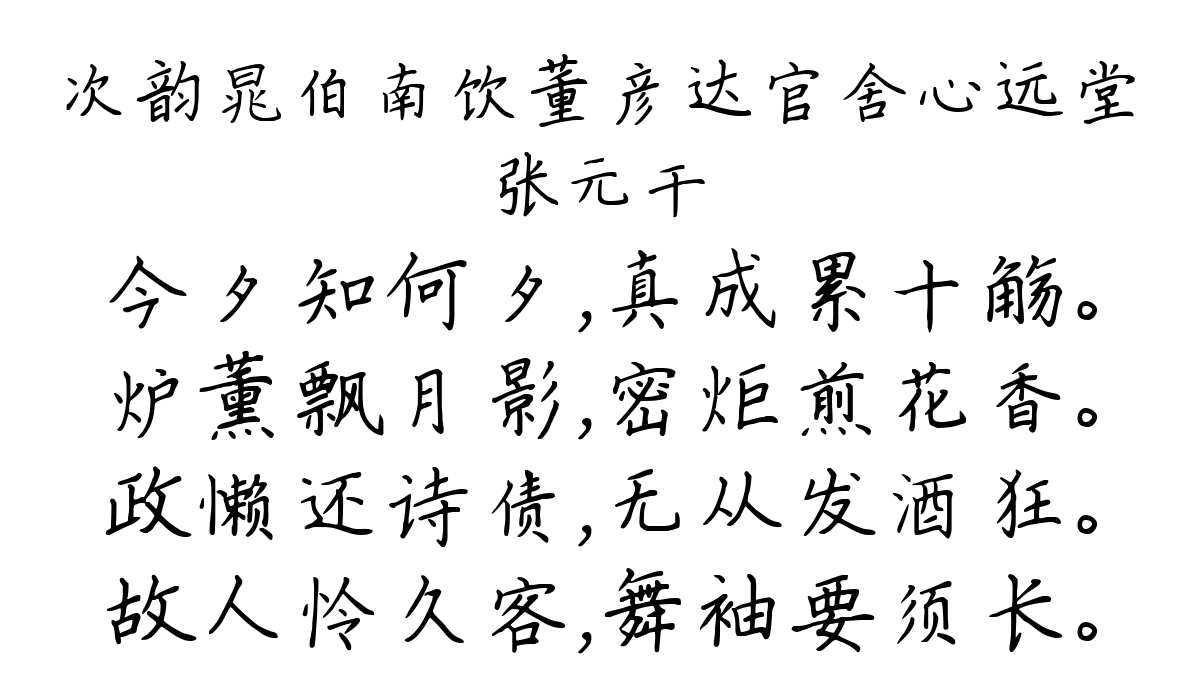 次韵晁伯南饮董彦达官舍心远堂
张元干
今夕知何夕,真成累十觞。
炉薰飘月影,密炬煎花香。
政懒还诗债,无从发酒狂。
故人怜久客,舞袖要须长。